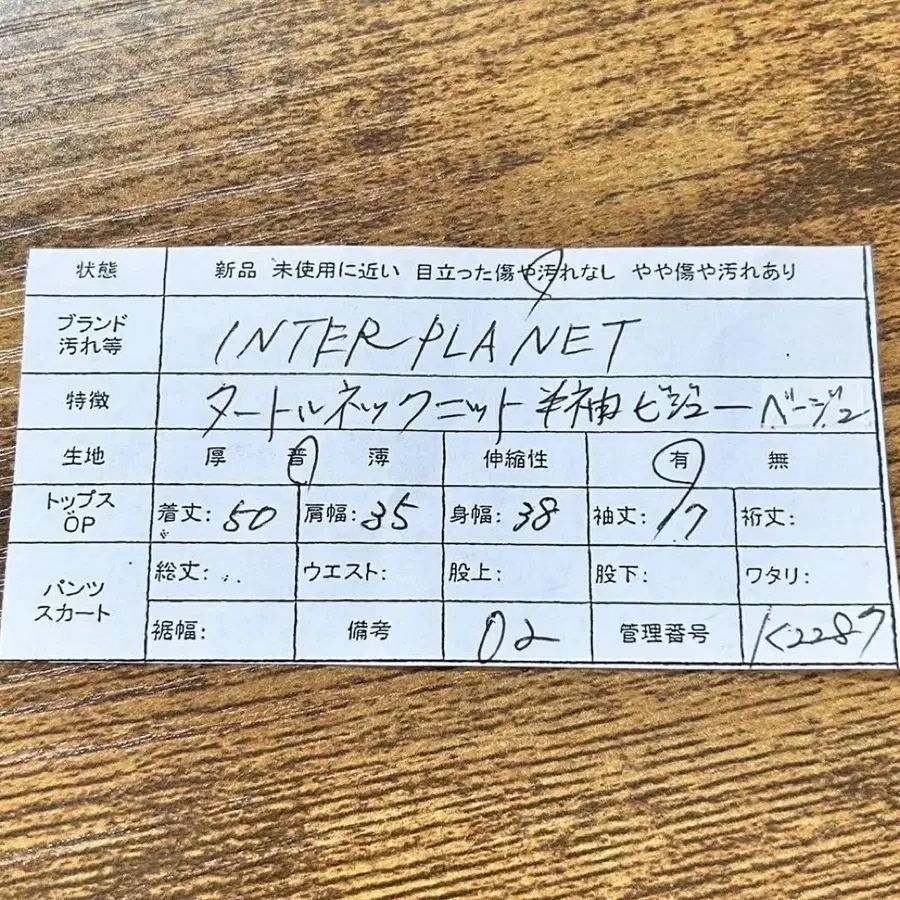 状態 新品 未使用に近い 目立った傷や汚れなし やや傷や汚れあり
ブランド
汚れ等 INTERPLANET
特徴 タートルネックニット半袖ビジューベージュ
生地 厚 普 薄 伸縮性 有 無
トップス
OP 着丈: 50 肩幅: 35 身幅: 38 袖丈: 17 裄丈:
パンツ
スカート 総丈: ウエスト: 股上: 股下: ワタリ:
裾幅: 備考 02 管理番号 K2287